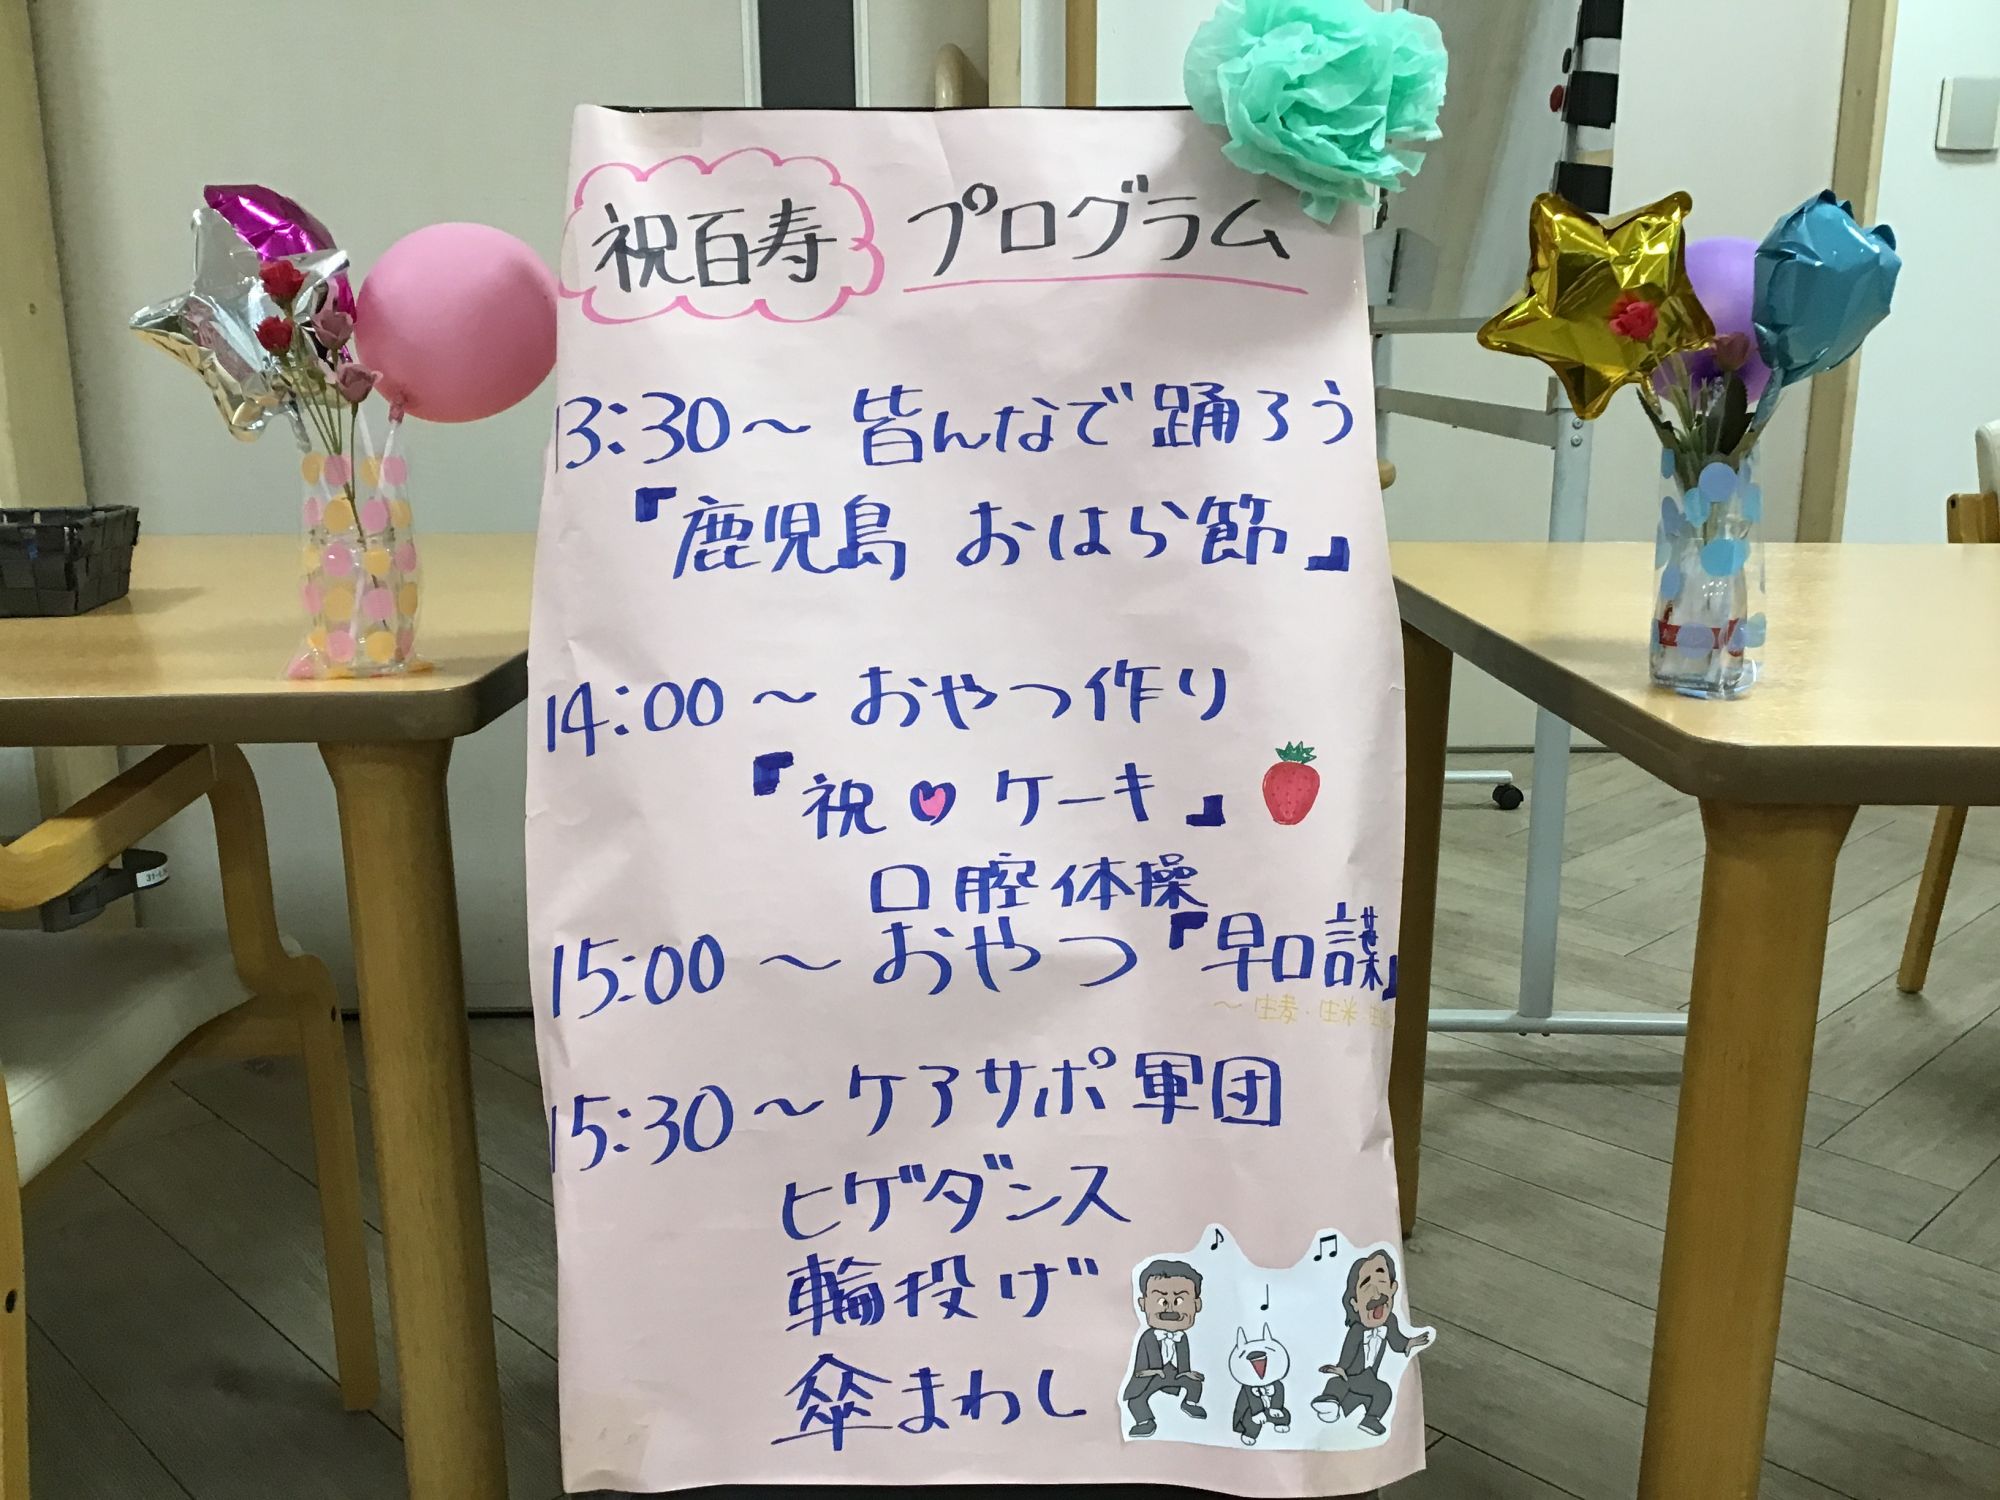 祝百寿 プログラム
13:30～ 皆んなで踊ろう
『鹿児島 おはら節』
14:00～ おやつ作り
『祝 ケーキ』
口腔体操
15:00～ おやつ『早口謀』
～生麦・生米・
15:30～ケアサポ軍団
ヒゲダンス
輪投げ
傘まわし